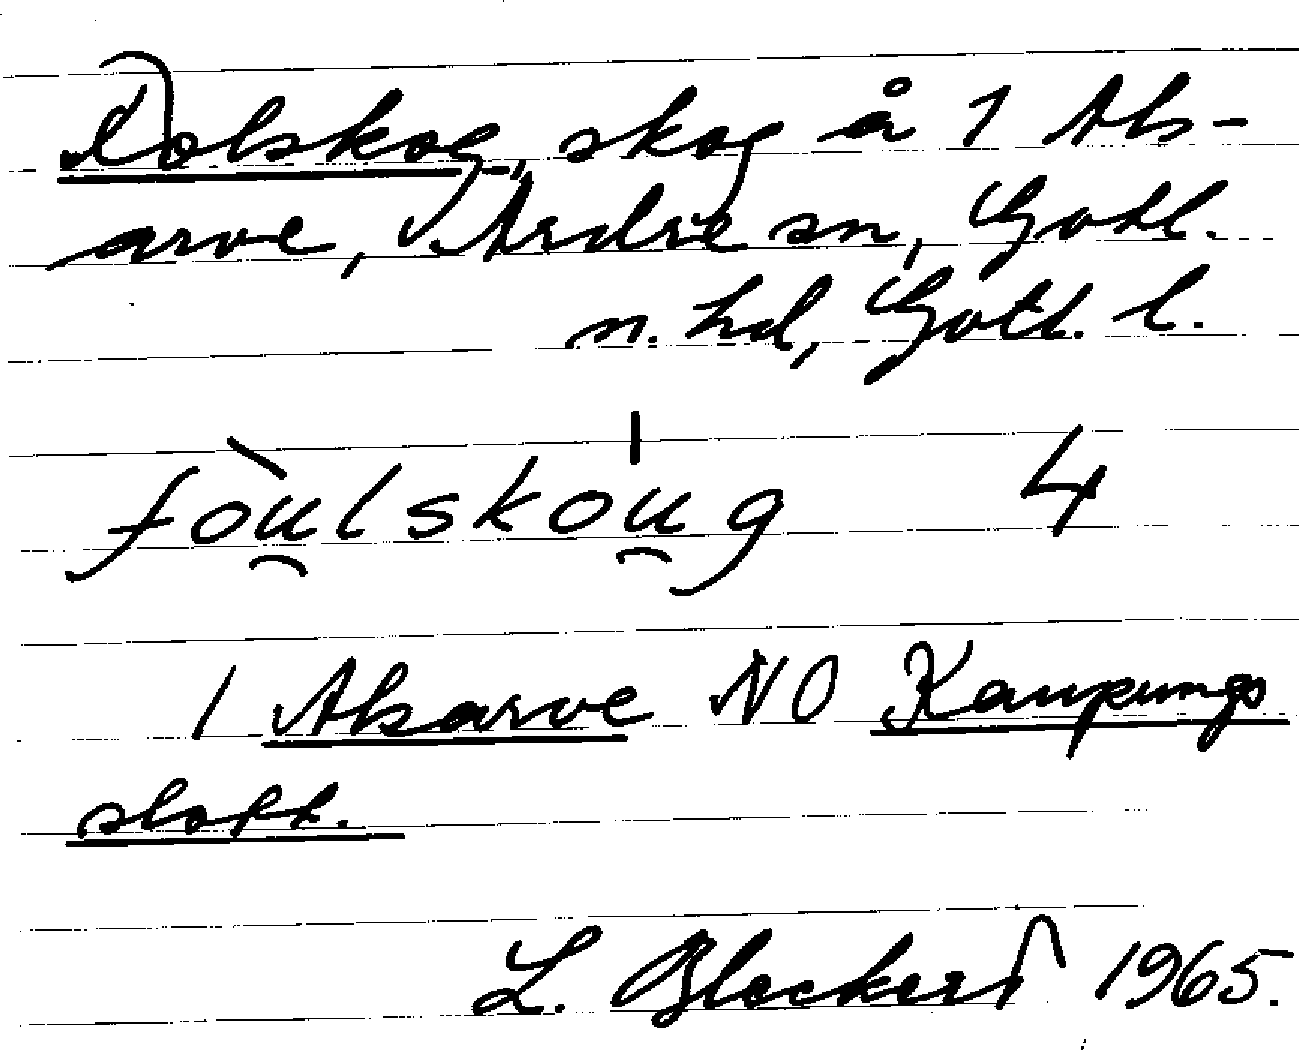 Folskog, skog å 1 Als-
arve, Ardre sn, Gotl.
n. hd, Gotl. l.
fòu̯lskou̯̍g 4
1 Alsarve NO Kaupungs
slott.
L. Bleckert 1965.